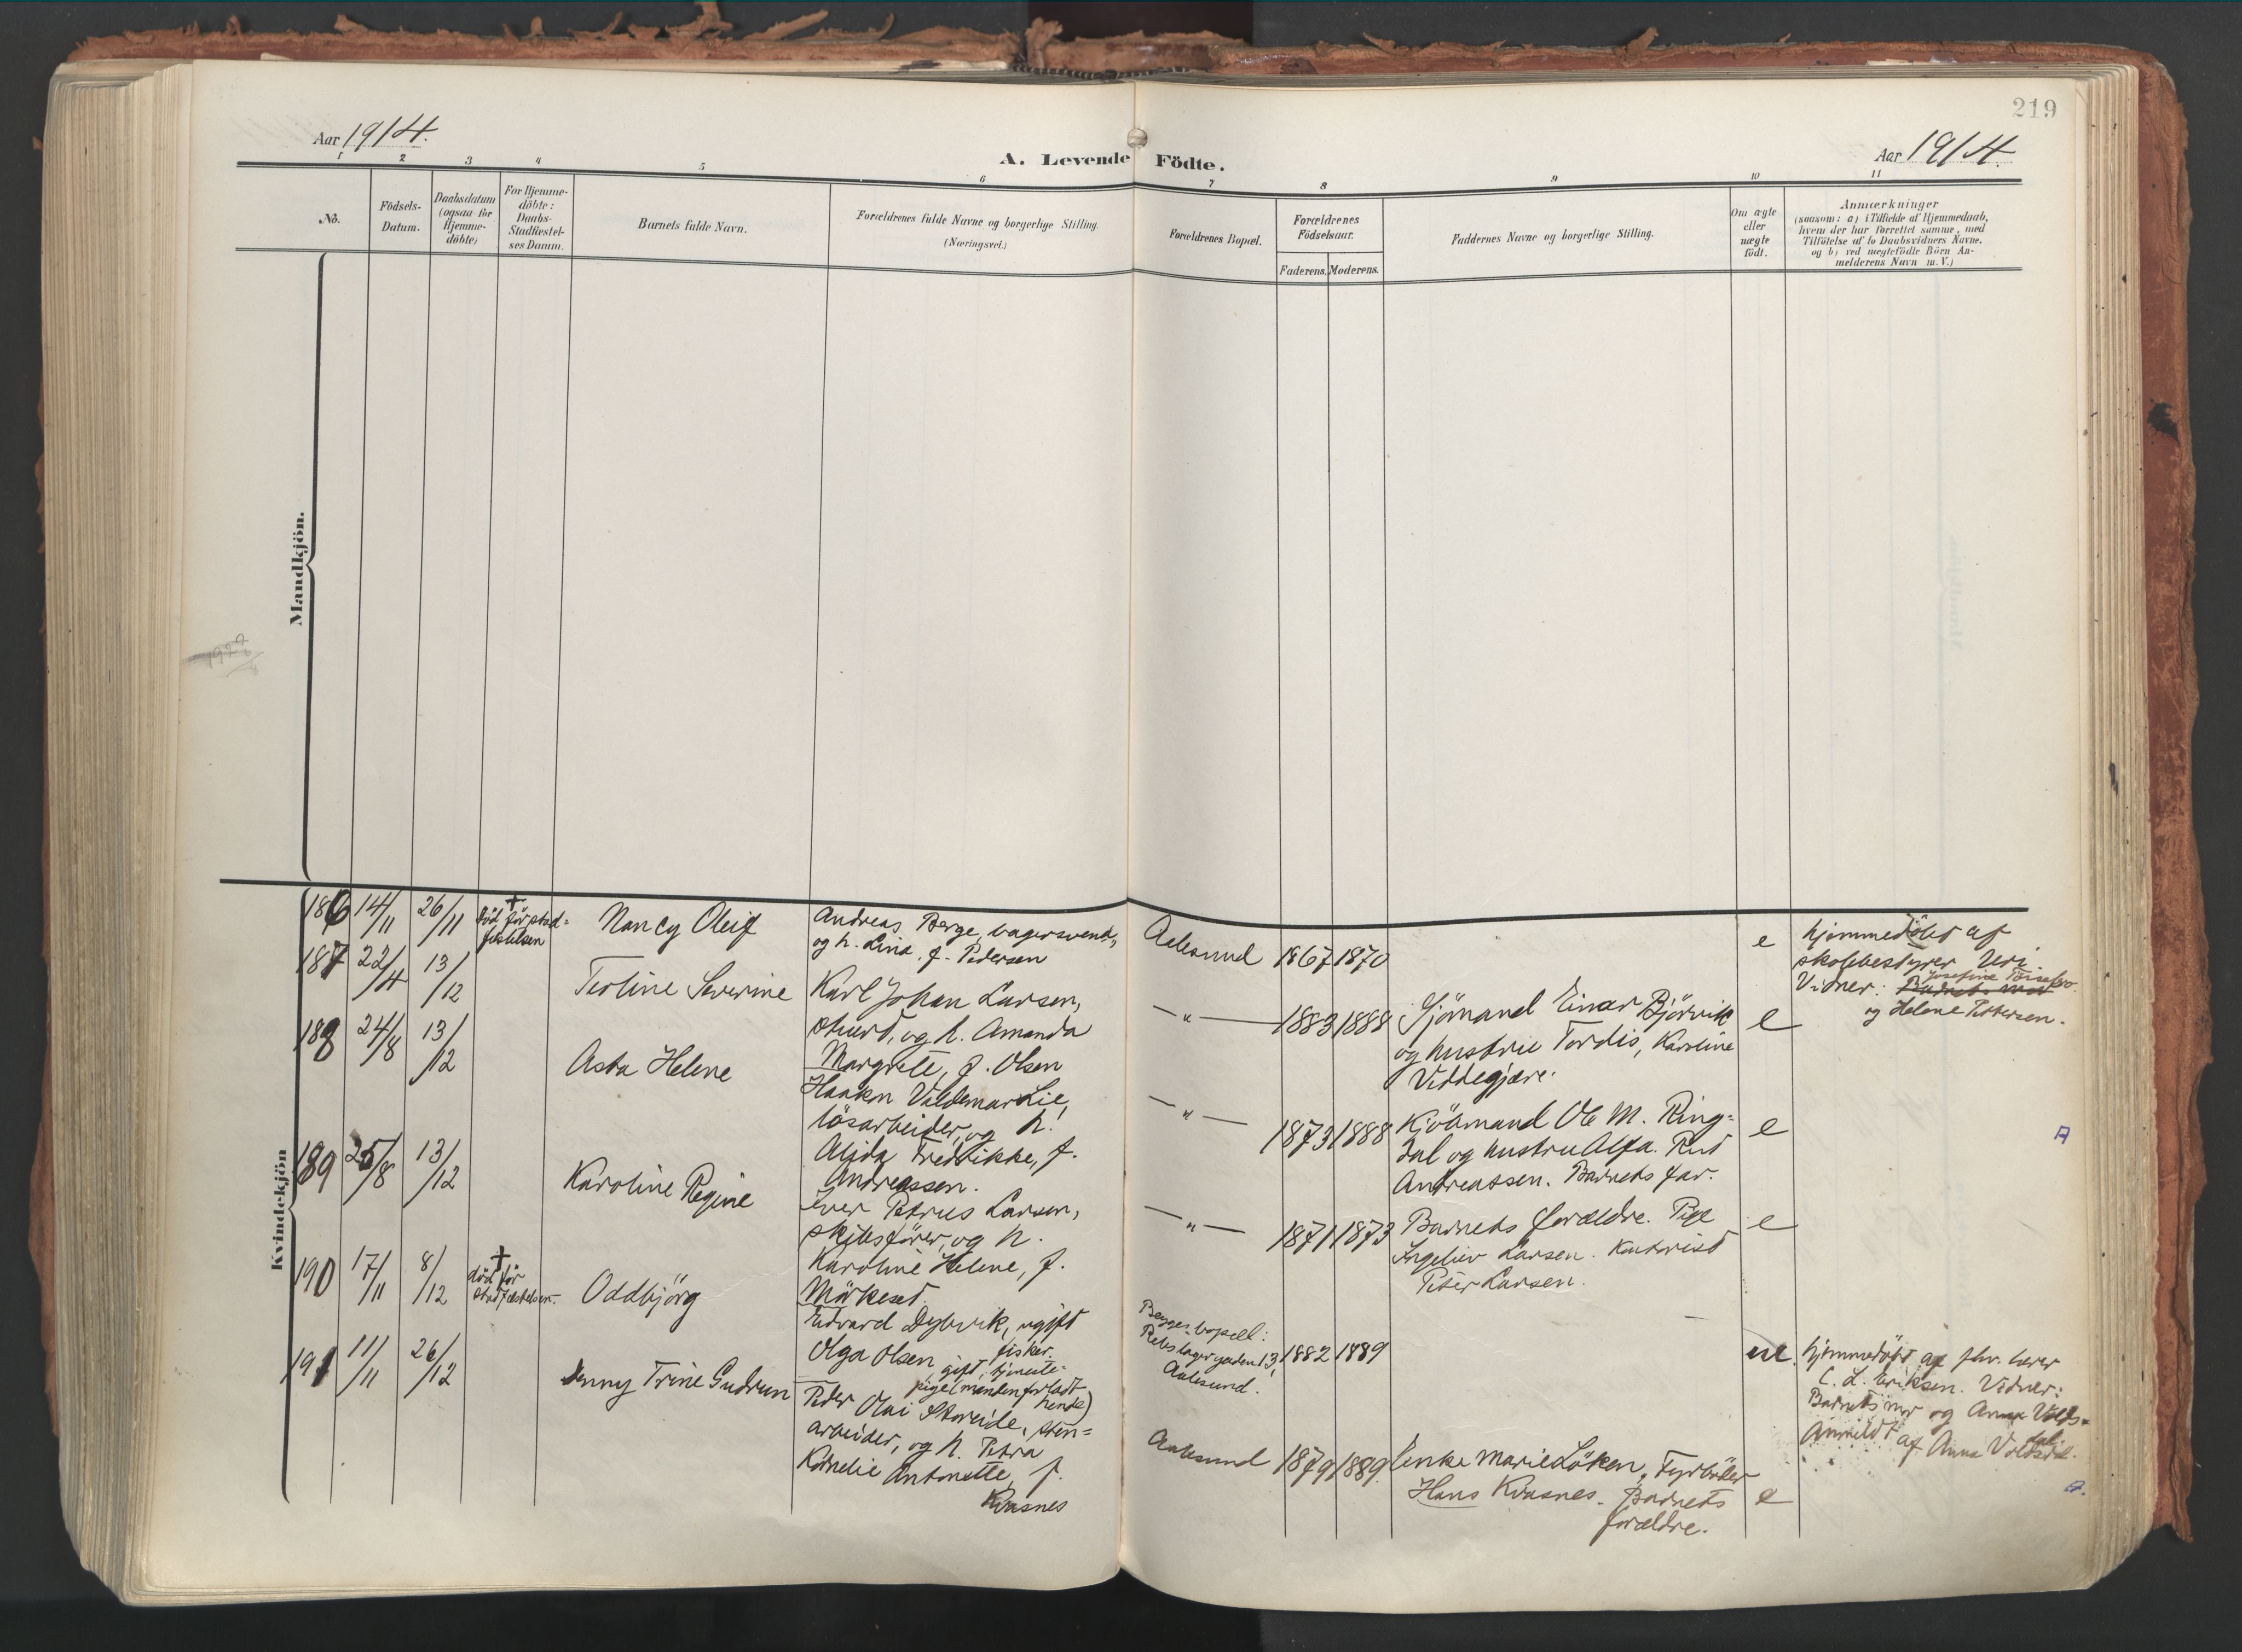 219
Aar 1914.
A. Levende Födte.
Aar 1914.
1 2 3 4 5 6 7 8 9 10 11
No.
Födsels-
Datum.
Daabsdatum
(ogsaa for
Hjemme-
döbte)
For Hjemme-
döbte:
Daabs-
Stadfæstel-
ses Datum.
Barnets fulde Navn.
Forældrenes fulde Navne og borgerlige Stilling.
(Næringsvei.)
Forældrenes Bopæl.
Forældrenes
Födselsaar.
Faderens. Moderens.
Faddernes Navne og borgerlige Stilling.
Om ægte
eller
uægte
födt.
Anmærkninger
(saasom: a) i Tilfælde af Hjemmedaab,
hvem der har forrettet samme, med
Tilföielse af to Daabsvidners Navne,
og b) ved uægtefödte Börn An-
melderens Navn m. V.)
Mandkjön.
Kvindekjön
186 14/11 26/11
död för stad=
festelsen
Nancy Oleif
Andreas Berge, bagersvend,
og h. Lina, f. Pedersen
Aalesund 1867 1870
e
hjemmedöbt af
skolebestyrer Uri.
Vidner:
og Helene Pettersen.
187 22/4 13/12
Teoline Severine
Karl Johan Larsen,
stuert, og h. Amanda
Margrete, f. Olsen
— " — 1883 1888
Sjömand Einar Björvik
og hustru Tordis, Karoline
Viddegjære.
e
188 24/8 13/12
Asta Helene
Haakon Valdemar Lie,
lösarbeider, og h.
Alida Fredrikke, f.
Andreassen.
— " — 1873 1888
Kjöbmand Ole M. Ring=
dal og hustru Alfa. Rut
Andreassen. Barnets far.
e
A
189 25/8 13/12
Karoline Regine
Iver Petrus Larsen,
skibsförer, og h.
Karoline Helene, f.
Mörkeset.
— " — 1871 1873
Barnets forældre. Pige
Ingeliev Larsen. Kontorist
Peter Larsen.
e
190 17/11 8/12
död för
stadfæstelsen.
Oddbjörg
Edvard Dybvik, ugift
fisker.
Olga Olsen, gift, tjeneste=
pige (manden forladt
hende)
Begges bopæl:
Rebslagergaden 13,
Aalesund.
1882 1889
ue.
hjemmedöbt af fhv. lærer
C. L. Eriksen. Vidner:
Barnets mor og Anna Volds=
dal.
Anmeldt af Anna Voldsdal.
191 11/11 26/12
Jenny Trine Gudrun
Peder Olai Storeide, sten=
arbeider, og h. Petra
Kornelie Antonette, f.
Kvasnes
Aalesund 1879 1889
Enke Marie Löken, Fyrböter
Hans Kvasnes. Barnets
forældre.
e